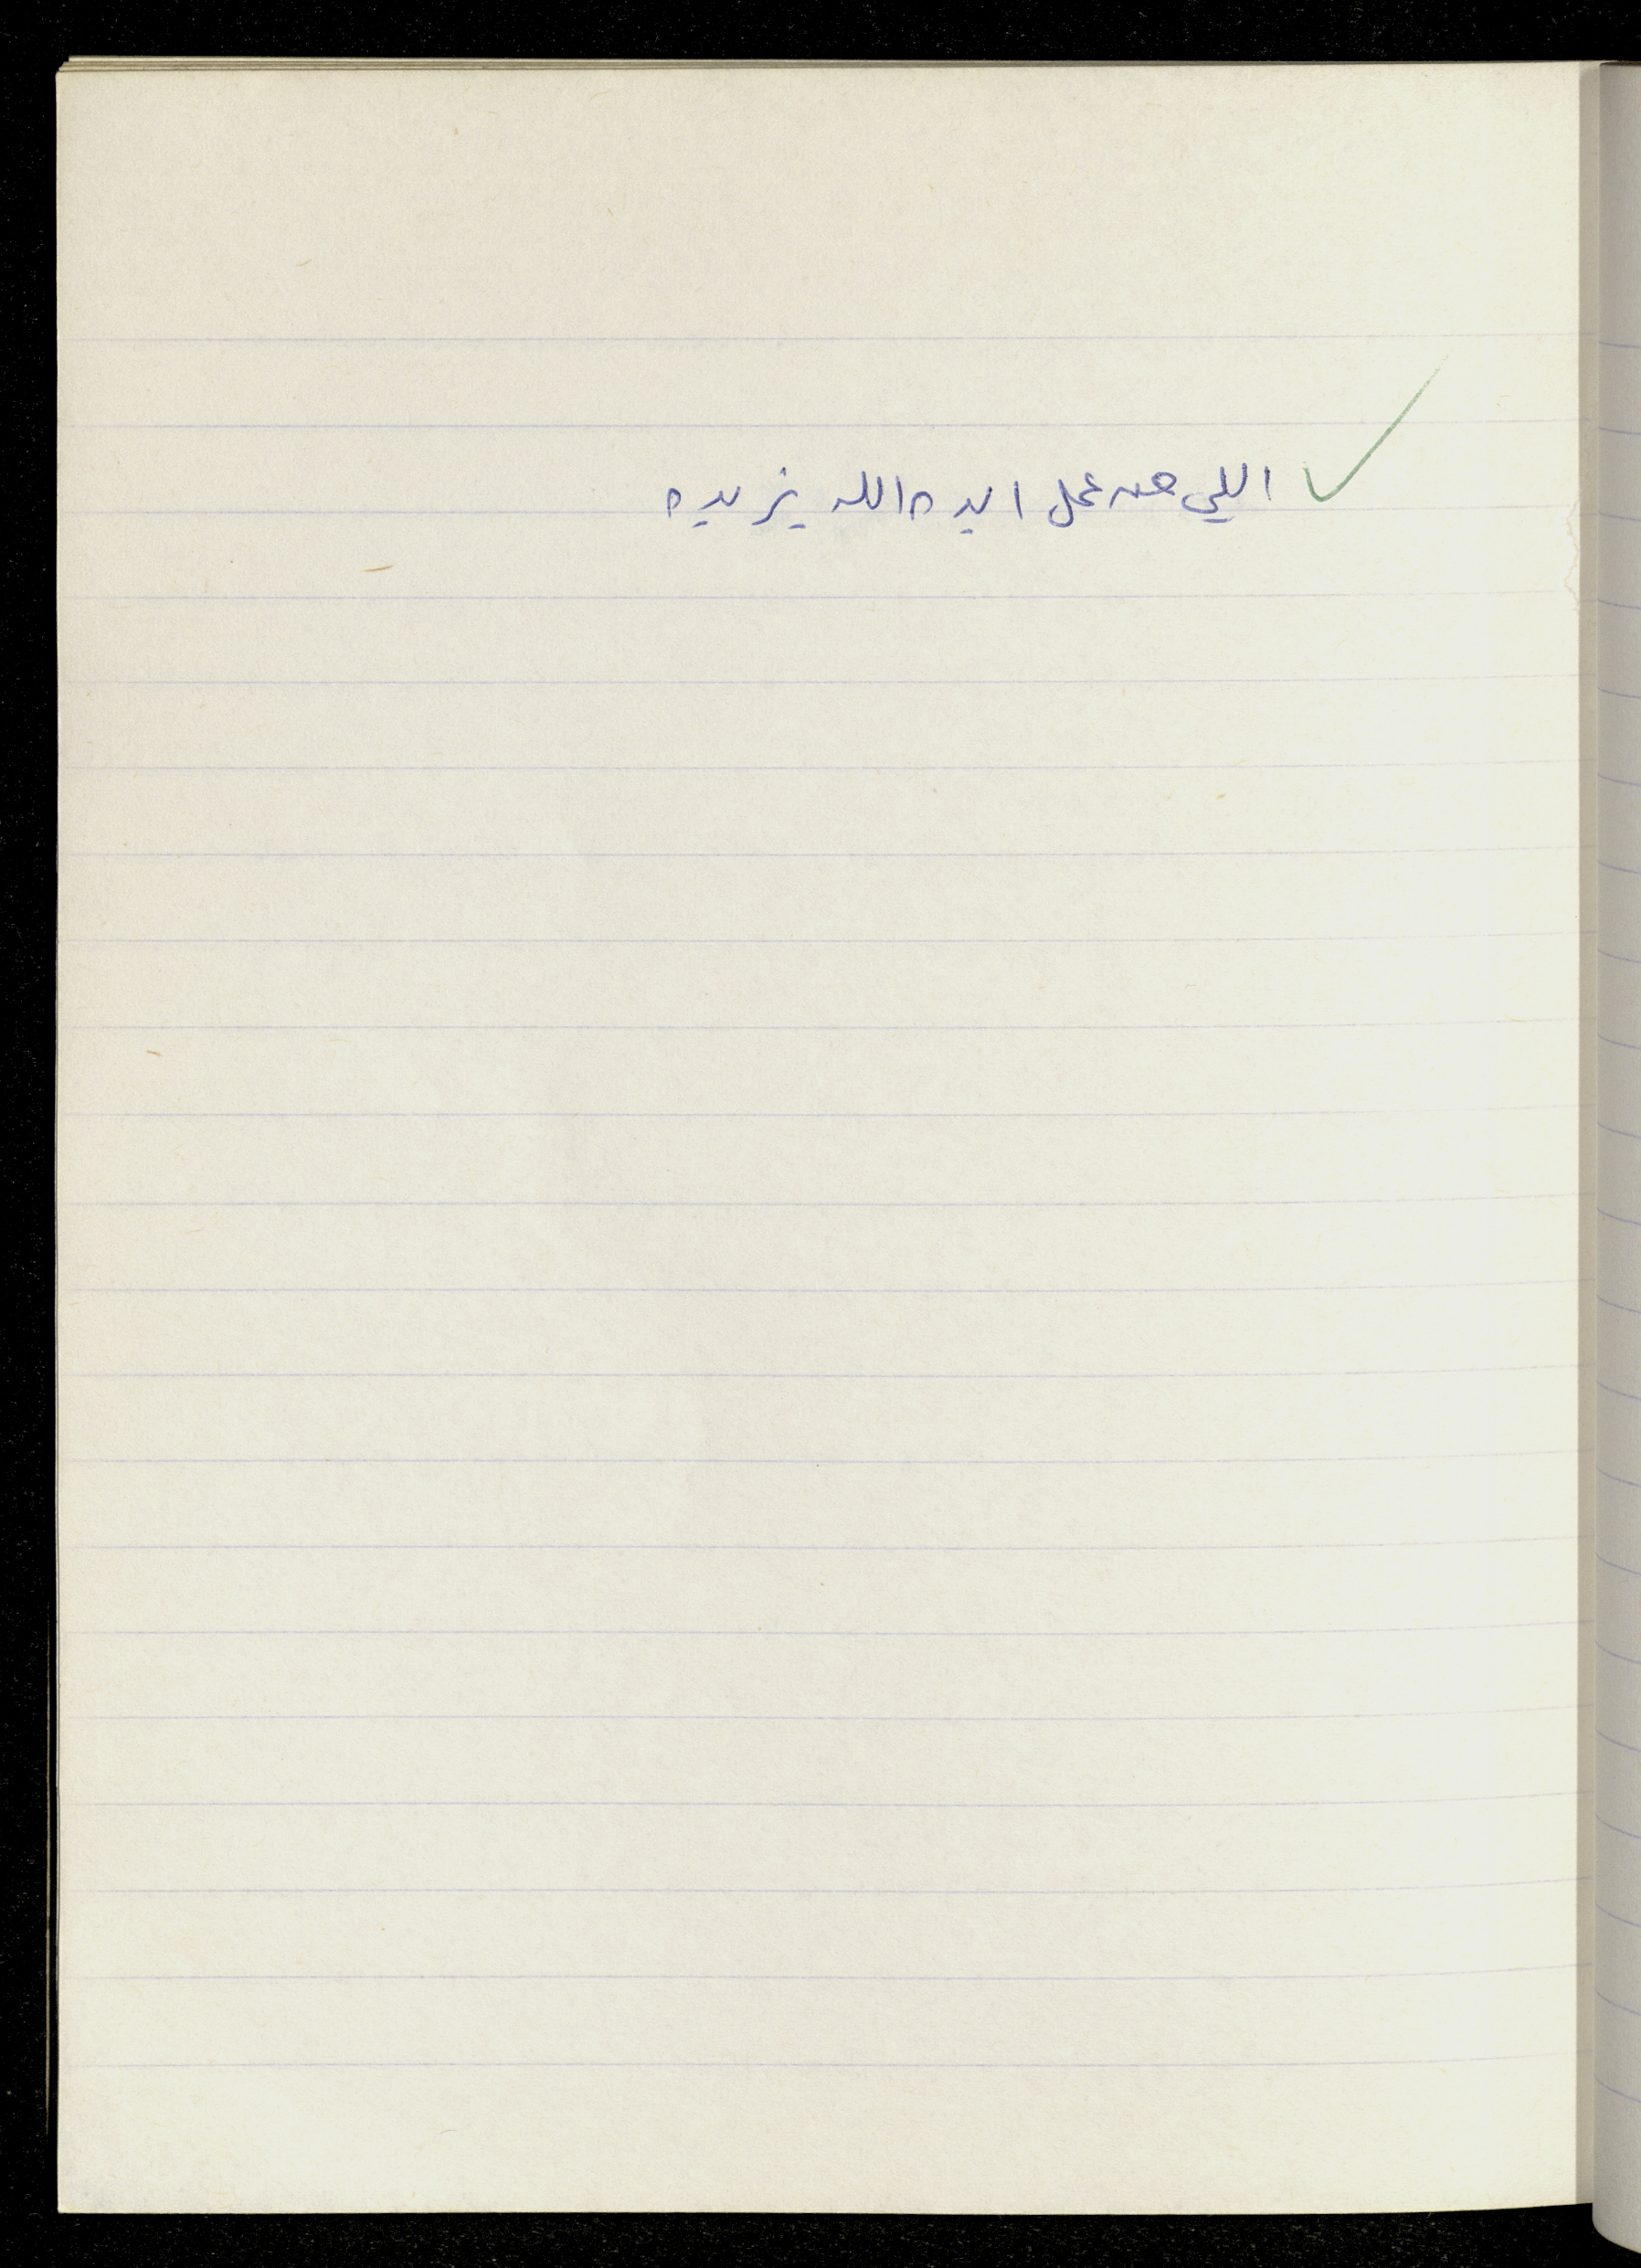 اللي من عمل ايده الله يزيده